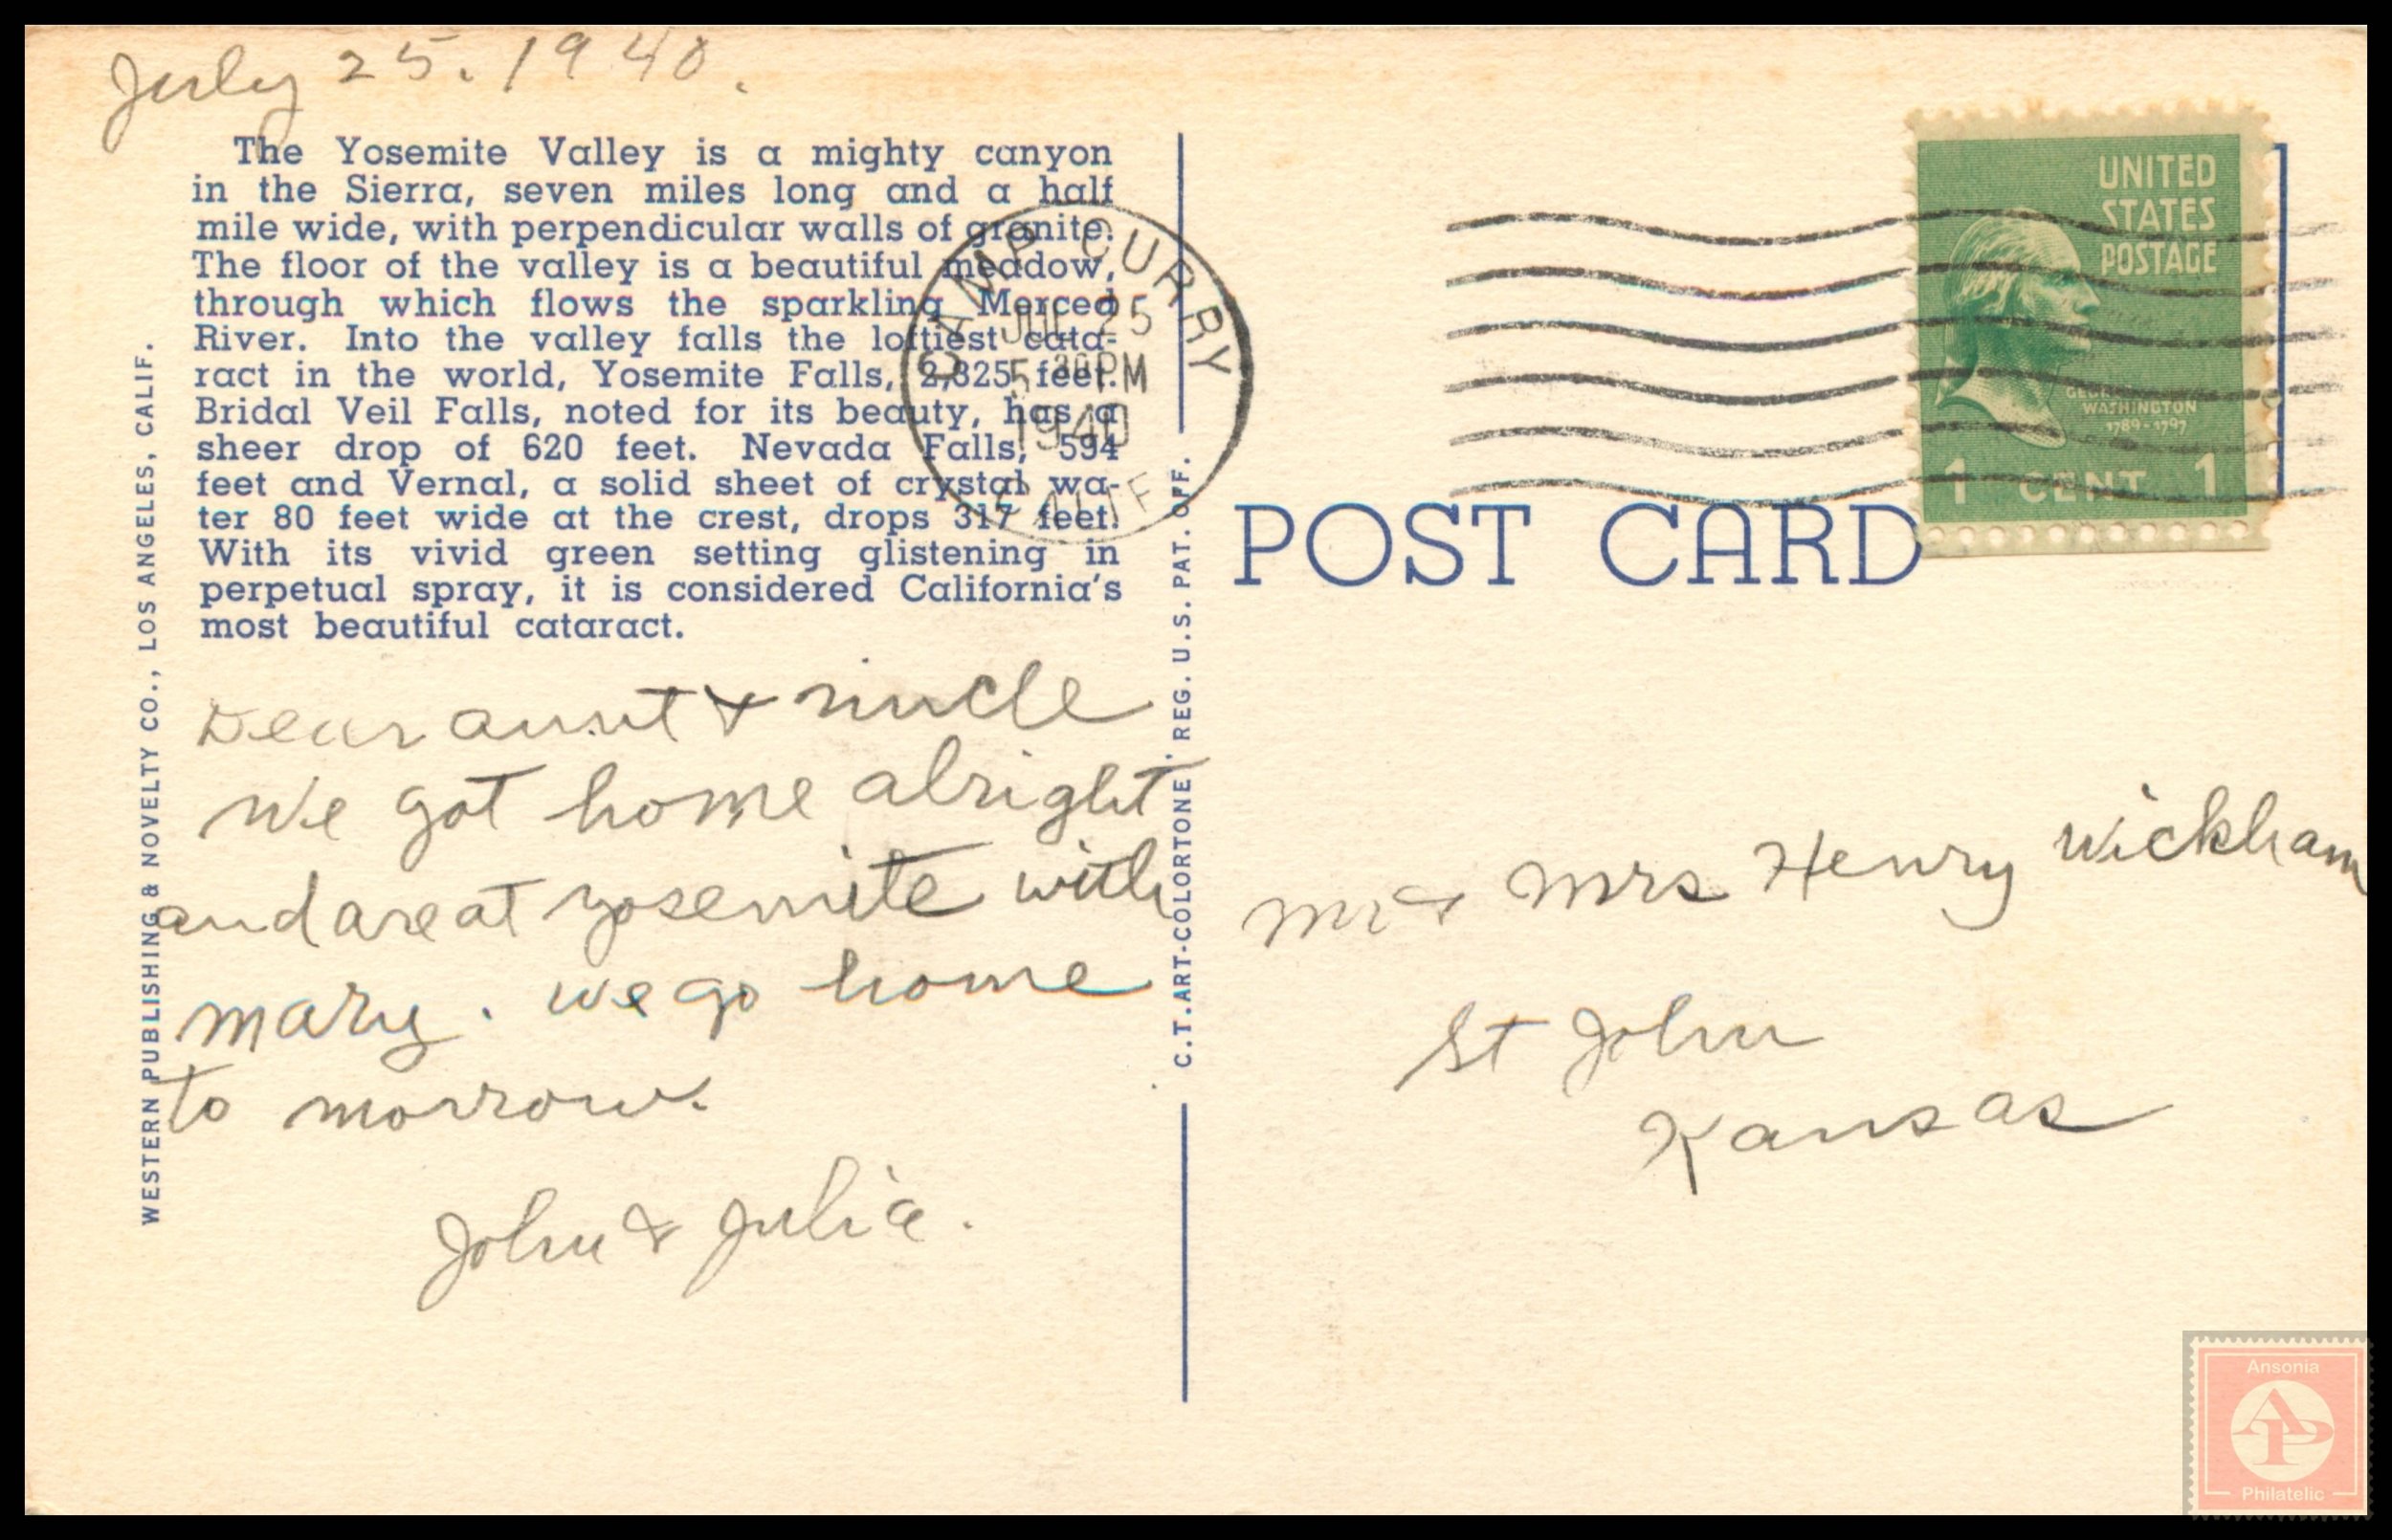 July 25. 1940.
The Yosemite Valley is a mighty canyon
in the Sierra, seven miles long and a half
mile wide, with perpendicular walls of granite.
The floor of the valley is a beautiful meadow,
through which flows the sparkling Merced
River. Into the valley falls the loftiest cata-
ract in the world, Yosemite Falls, 2,825 feet.
Bridal Veil Falls, noted for its beauty, has a
sheer drop of 620 feet. Nevada Falls, 594
feet and Vernal, a solid sheet of crystal wa-
ter 80 feet wide at the crest, drops 317 feet.
With its vivid green setting glistening in
perpetual spray, it is considered California's
most beautiful cataract.
Dear aunt & uncle
We got home alright
and are at yosemite with
mary. we go home
to morrow.
John & Julia.
WESTERN PUBLISHING & NOVELTY CO., LOS ANGELES, CALIF.
C.T. ART-COLORTONE, REG. U.S. PAT. OFF.
CAMP CURRY
JUL 25
5 30 PM
1940
CALIF
UNITED
STATES
POSTAGE
GEORGE
WASHINGTON
1789-1797
1 CENT 1
POST CARD
Mr & Mrs Henry Wickham
St John
Kansas
Ansonia
AP
Philatelic